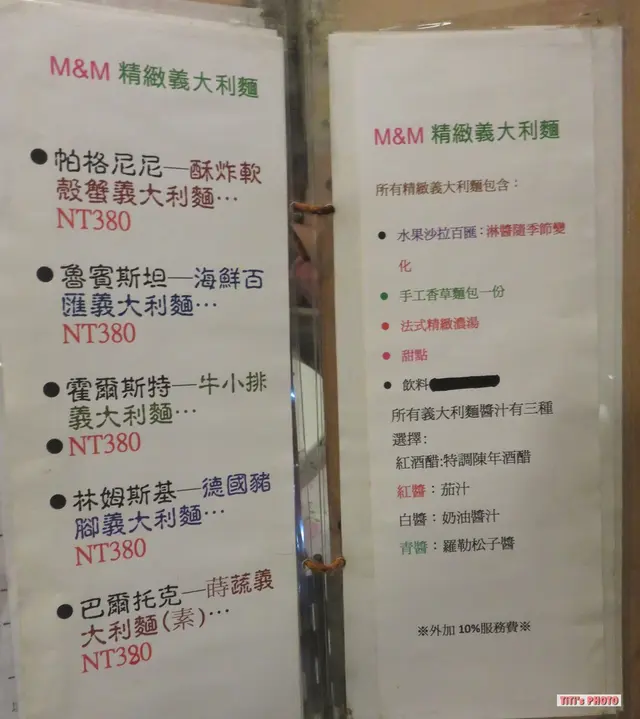 M&M 精緻義大利麵
●帕格尼尼—酥炸軟
殼蟹義大利麵…
NT380
●魯賓斯坦—海鮮百
匯義大利麵…
NT380
●霍爾斯特—牛小排
義大利麵…
●NT380
●林姆斯基—德國豬
腳義大利麵…
NT380
●巴爾托克—蒔蔬義
大利麵(素)…
NT380
M&M 精緻義大利麵
所有精緻義大利麵包含：
● 水果沙拉百匯：淋醬隨季節變
化
● 手工香草麵包一份
● 法式精緻濃湯
● 甜點
● 飲料
所有義大利麵醬汁有三種
選擇:
紅酒醋:特調陳年酒醋
紅醬：茄汁
白醬：奶油醬汁
青醬：羅勒松子醬
※外加 10%服務費※
TITI's PHOTO